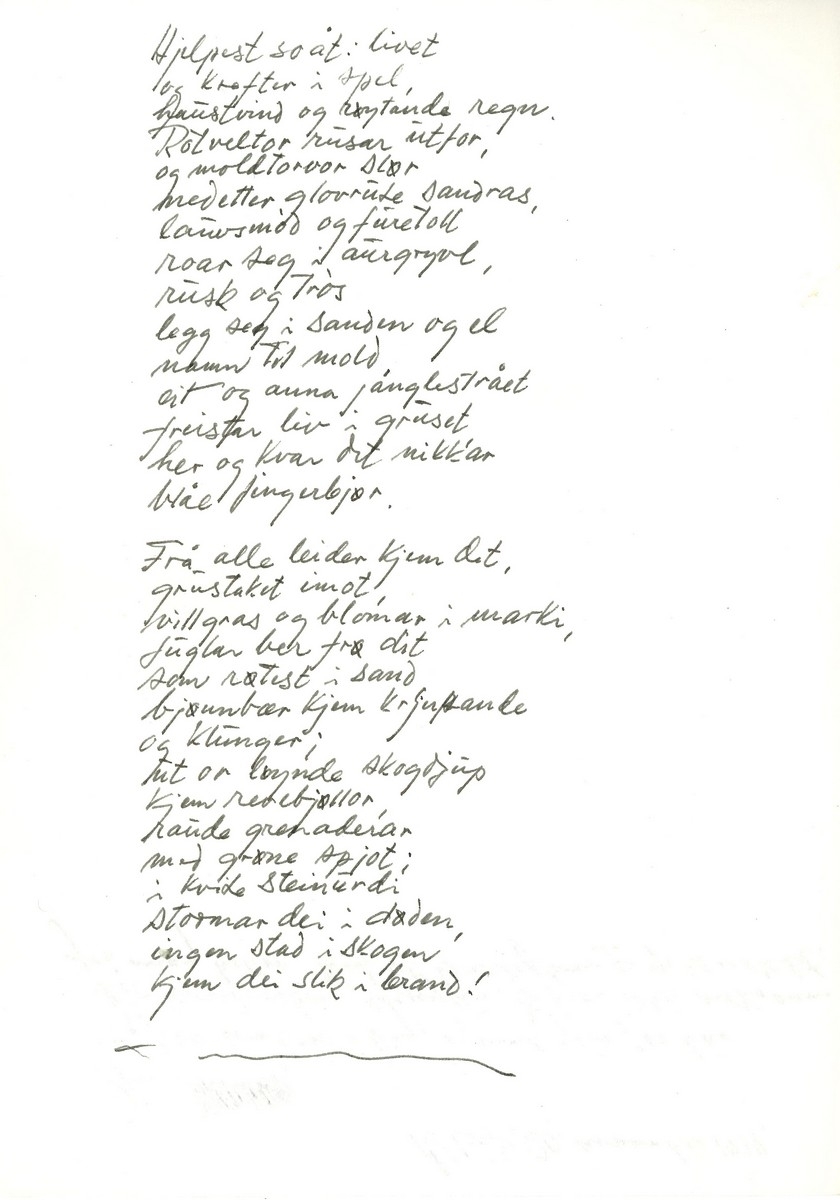 Hjelpest so åt: livet
og krefter i spel,
haustvind og røytande regn.
Rotveltor rusar utfor,
og moldtorvor slær
nedetter glovruse sandras,
lauvsmod og furetoll
roar seg i aurgryvl,
rusk og tros
legg seg i sanden og el
namn til mold,
eit og anna janglestrået
freistar liv i gruset
her og kvar det nikkar
blåe fingerbjør.

Frå alle leider kjem det,
grustaket imot,
villgras og blomar i marki,
fuglar ber frø dit
som røtest i sand
bjørnbær kjem krjupande
og klunger;
tut or løynde skogdjup
kjem revebjøllor,
raude grenaderar
med grøne spjot;
i kvite steinurdi
stormar dei i døden,
ingen stad i skogen
kjem dei slik i brand!